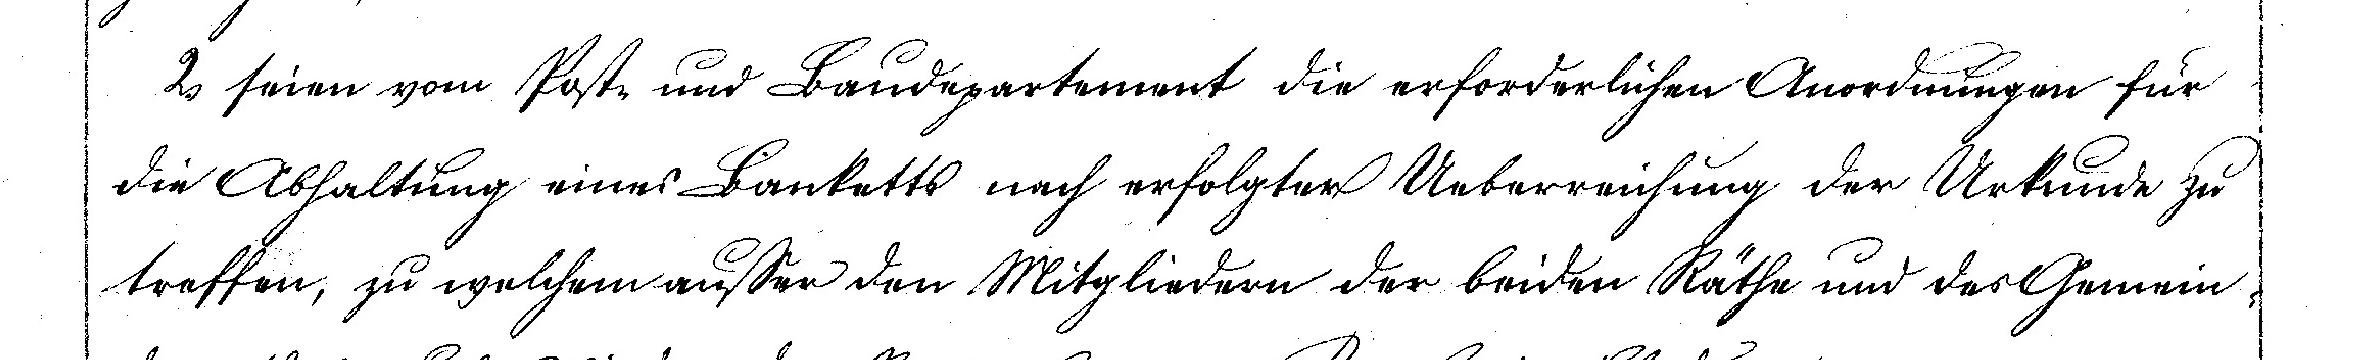 2, seien vom Post- und Baudepartement die erforderlichen Anordnungen für
die Abhaltung eines Banketts nach erfolgter Ueberreichung der Urkunde zu
treffen, zu welchem ausser den Mitgliedern der beiden Räthe und des Gemein-